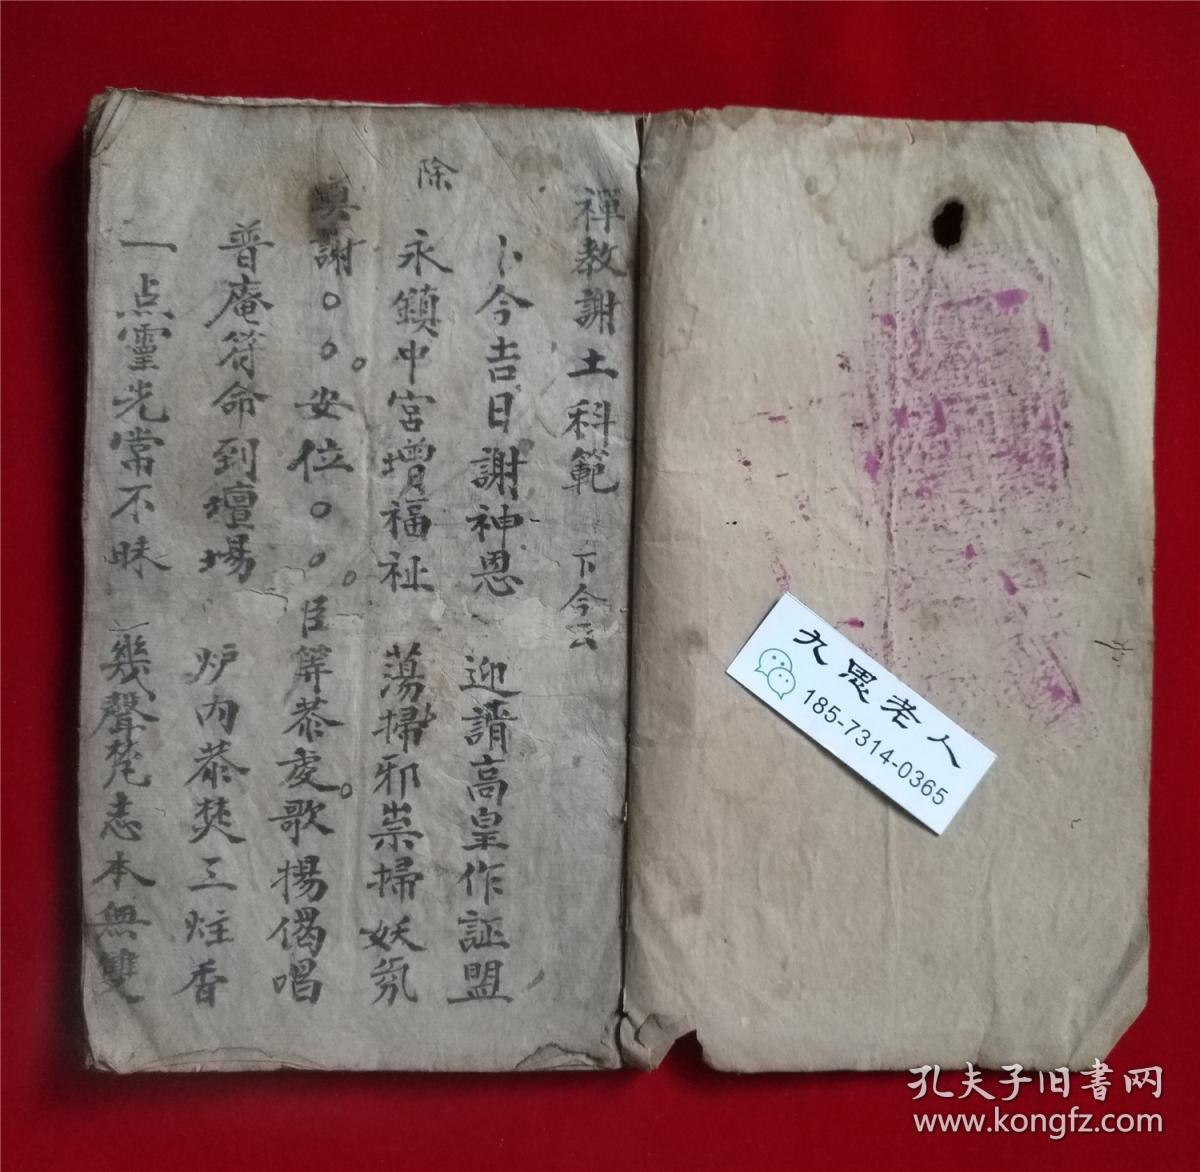 禪教謝土科範 下今云
卜今吉日謝神恩 迎請高皇作証盟
除
永鎮中宮增福祉 蕩掃邪祟掃妖氛
奠謝○○○安位○○○臣等恭虔歌揚偈唱
普庵符命到壇場 炉內恭焚三炷香
一点靈光常不昧 幾聲梵志本無雙
九思老人
185-7314-0365
孔夫子旧書网
www.kongfz.com